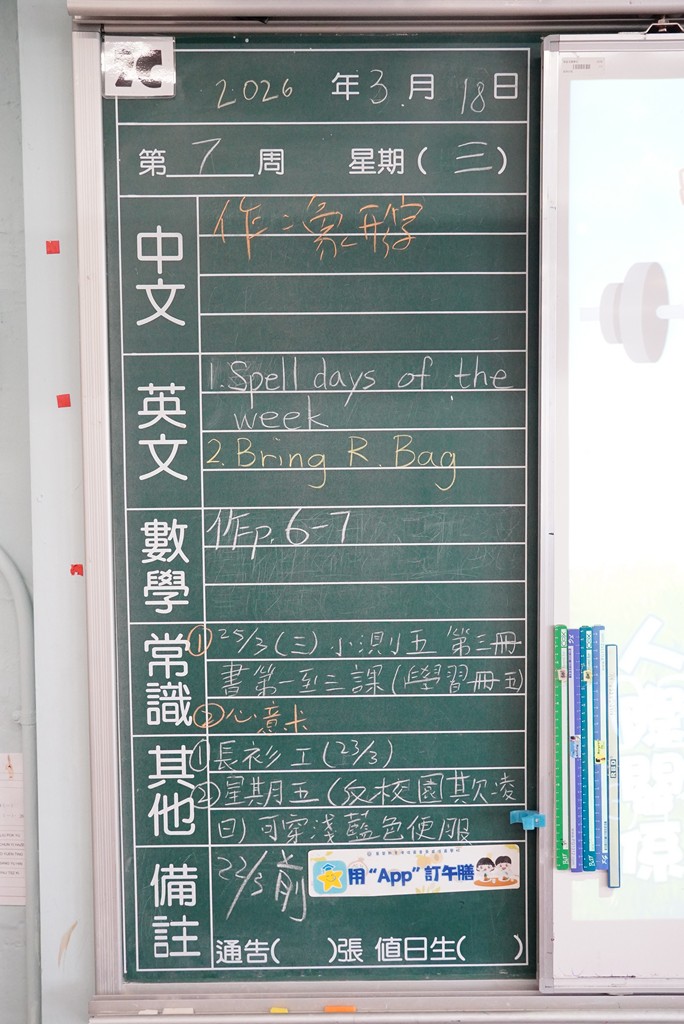 2C
2026 年 3 月 18 日
第 7 周 星期 ( 三 )
中文
作：象形字
英文
1. Spell days of the
week
2. Bring R. Bag
數學
作p. 6-7
常識
① 25/3 (三) 小測五 第三冊
書第一到三課 (學習冊五)
② 心意卡
其他
① 長衫 工 (23/3)
② 星期五 (反校園欺凌
日) 可穿淺藍色便服
備註
22/3 前
用 “App” 訂午膳
通告( )張 值日生( )
人
關係